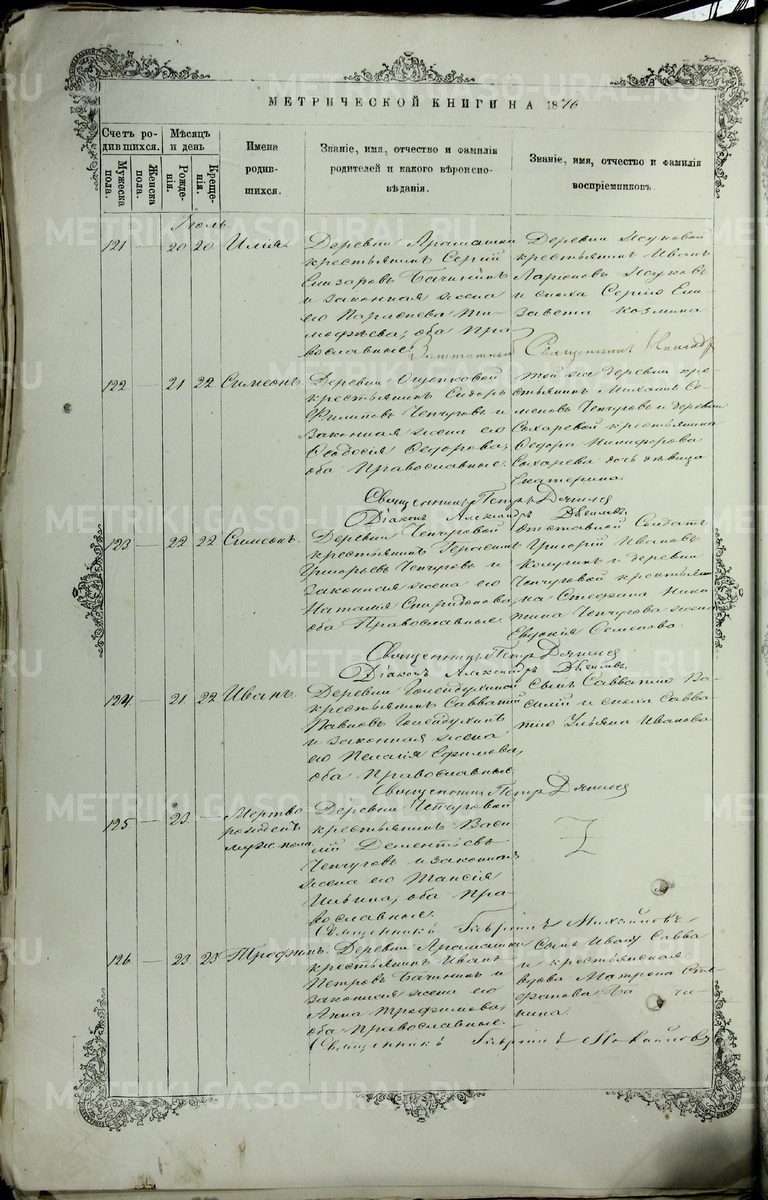 МЕТРИЧЕСКОЙ КНИГИ НА 1876
Счетъ родившихся.
Мужеска пола.
Женска пола.
Мѣсяцъ и день
Рожденія.
Крещенія.
Имена родившихся.
Званіе, имя, отчество и фамилія родителей и какого вѣроисповѣданія.
Званіе, имя, отчество и фамилія воспріемниковъ.
Іюль
121 — 20 20 Илія
Деревни Арамашки
крестьянинъ Сергій
Елизаровъ Бачининъ
и законная жена
его Параскева Ти-
моѳѣева, оба Пра-
вославные.
Деревни Жуковой
крестьянинъ Иванъ
Ларіоновъ Жуковъ
и сноха Сергія Ели-
завета Козмина
Священникъ
122 — 21 22 Симеонъ.
Деревни Ощепковой
крестьянинъ Сидоръ
Филиповъ Чепчуговъ и
законная жена его
Ѳеодосія Ѳедорова,
оба Православные.
Той же деревни кре-
стьянинъ Михаилъ Се-
меновъ Чепчуговъ и деревни
Сохаревой крестьянина
Ѳедора Никифорова
Сохарева дочь дѣвица
Екатерина.
Священникъ Петръ
Діаконъ Александръ
123 — 22 22 Симеонъ.
Деревни Чепчуговой
крестьянинъ Герасимъ
Григорьевъ Чепчуговъ и
законная жена его
Наталія Спиридонова,
оба Православные.
Отставной Солдатъ
Григорій Ивановъ
и деревни
Чепчуговой крестьяни-
на Стефана Ники-
тина Чепчугова жена
Евдокія Семенова.
Священникъ Петръ
Діаконъ Александръ
124 — 21 22 Иванъ.
Деревни Голендухиной
крестьянинъ Савватій
Павловъ Голендухинъ
и законная жена
его Пелагія Ефимова,
оба Православные.
Сынъ Савватію Ва-
силій и сноха Савва-
тію Ульяна Иванова
Священникъ Петръ
125 — 23 —
Мертво
рожденъ
муж. пола
Деревни Чепчуговой
крестьянинъ Васи-
лій Дементіевъ
Чепчуговъ и законная
жена его Таисія
Ильина, оба Пра-
вославные.
Священникъ Гавріилъ Михайловъ
126 — 23 25 Трофимъ.
Деревни Арамашки
крестьянинъ Иванъ
Петровъ Бачининъ и
законная жена его
Анна Трофимова,
оба Православные.
Сынъ Ивану Савва
и крестьянская
вдова Матрона Сте-
фанова Ба чи-
нина.
Священникъ Гавріилъ Михайловъ
METRIKI.GASO-URAL.RU